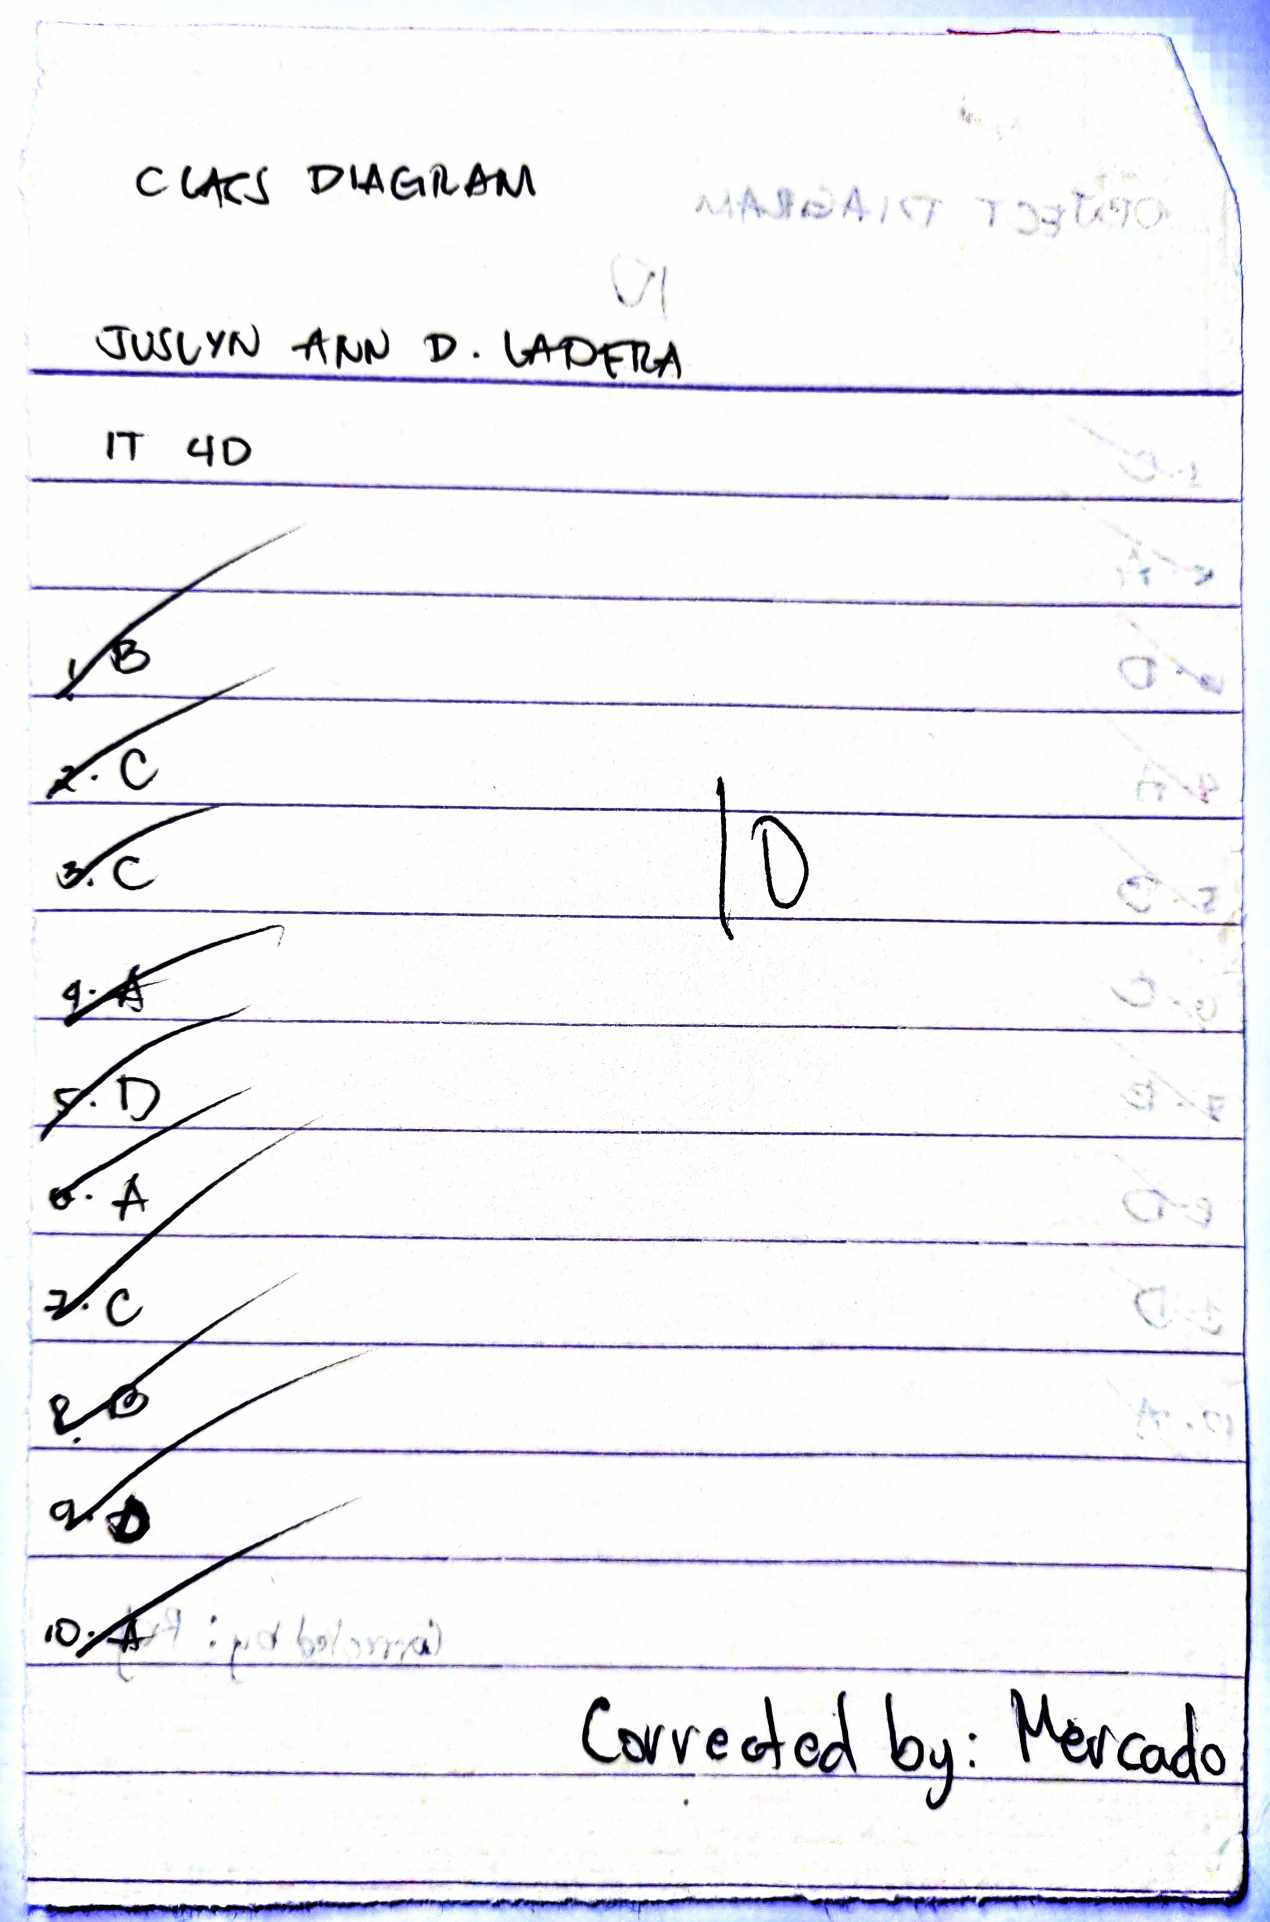 CLASS DIAGRAM
JUSLYN ANN D. LADERA
IT 4D
1. B
2. C
3. C
10
4. A
5. D
6. A
7. C
8. B
9. D
10. A
Corrected by: Mercado